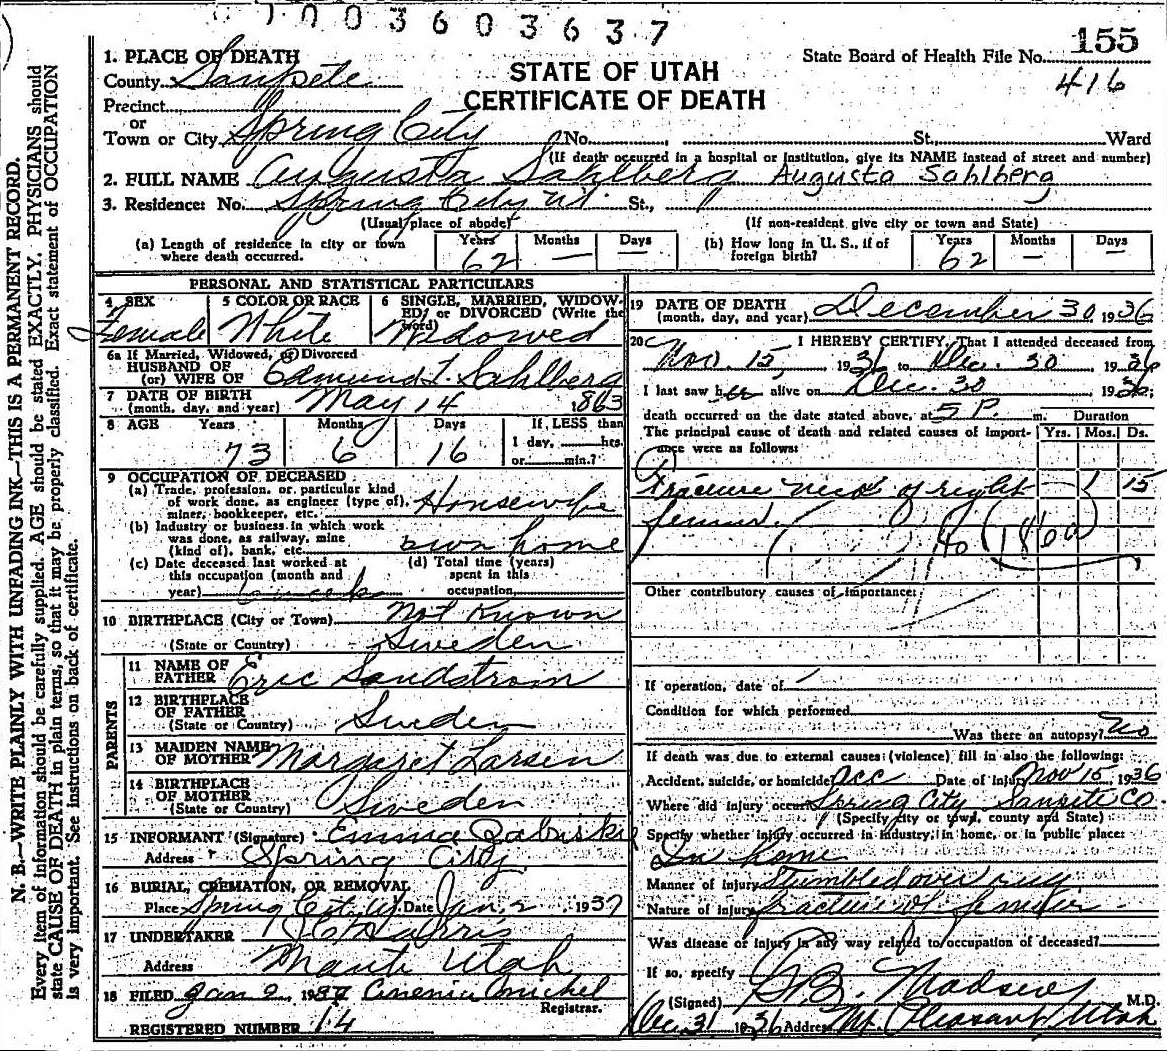 1003603637
155
State Board of Health File No.
416
STATE OF UTAH
CERTIFICATE OF DEATH
N. B.—WRITE PLAINLY WITH UNFADING INK—THIS IS A PERMANENT RECORD.
Every item of information should be carefully supplied. AGE should be stated EXACTLY. PHYSICIANS should
state CAUSE OF DEATH in plain terms, so that it may be properly classified. Exact statement of OCCUPATION
is very important. See instructions on back of certificate.
1. PLACE OF DEATH
County Sanpete
Precinct
or
Town or City Spring City No. St. Ward
(If death occurred in a hospital or institution, give its NAME instead of street and number)
2. FULL NAME Augusta Sahlberg Augusta Sahlberg
3. Residence: No. Spring City Ut. St., "
(Usual place of abode) (If non-resident give city or town and State)
(a) Length of residence in city or town where death occurred. Years 62 Months — Days —
(b) How long in U. S., if of foreign birth? Years 62 Months — Days —
PERSONAL AND STATISTICAL PARTICULARS
4 SEX Female
5 COLOR OR RACE White
6 SINGLE, MARRIED, WIDOWED, or DIVORCED (Write the word) Widowed
6a If Married, Widowed, or Divorced
HUSBAND OF
(or) WIFE OF Edmund L. Sahlberg
7 DATE OF BIRTH
(month, day, and year) May 14 1863
8 AGE Years 73 Months 6 Days 16 If LESS than
1 day, hrs.
or min.?
9 OCCUPATION OF DECEASED
(a) Trade, profession, or particular kind
of work done, as engineer (type of),
miner, bookkeeper, etc. Housewife
(b) Industry or business in which work
was done, as railway, mine
(kind of), bank, etc. own home
(c) Date deceased last worked at
this occupation (month and
year)
(d) Total time (years)
spent in this
occupation
10 BIRTHPLACE (City or Town) Not Known
(State or Country) Sweden
PARENTS
11 NAME OF
FATHER Eric Sandstrom
12 BIRTHPLACE
OF FATHER
(State or Country) Sweden
13 MAIDEN NAME
OF MOTHER Margaret Larsen
14 BIRTHPLACE
OF MOTHER
(State or Country) Sweden
15 INFORMANT (Signature) Emma Zabriskie
Address Spring City
16 BURIAL, CREMATION, OR REMOVAL
Place Spring City, Ut. Date Jan. 2 1937
17 UNDERTAKER Harris
Address Manti Utah
18 FILED Jan 2 1937
Registrar.
REGISTERED NUMBER 14
19 DATE OF DEATH
(month, day, and year) December 30 1936
20 I HEREBY CERTIFY, That I attended deceased from
Nov. 15, 1936 to Dec. 30 1936
I last saw her alive on Dec. 30 1936;
death occurred on the date stated above, at 5 P. m. Duration
The principal cause of death and related causes of importance were as follows: Yrs. Mos. Ds.
Fracture neck of right 1 15
femur.
186a
Other contributory causes of importance:
If operation, date of
Condition for which performed
Was there an autopsy? No
If death was due to external causes (violence) fill in also the following:
Accident, suicide, or homicide acc Date of injury Nov 15 1936
Where did injury occur Spring City Sanpete Co
(Specify city or town, county and State)
Specify whether injury occurred in industry, in home, or in public place:
In home
Manner of injury Stumbled over rug
Nature of injury fracture of femur
Was disease or injury in any way related to occupation of deceased?
If so, specify
(Signed) Madsen M.D.
Dec. 31 1936 Address Mt. Pleasant, Utah